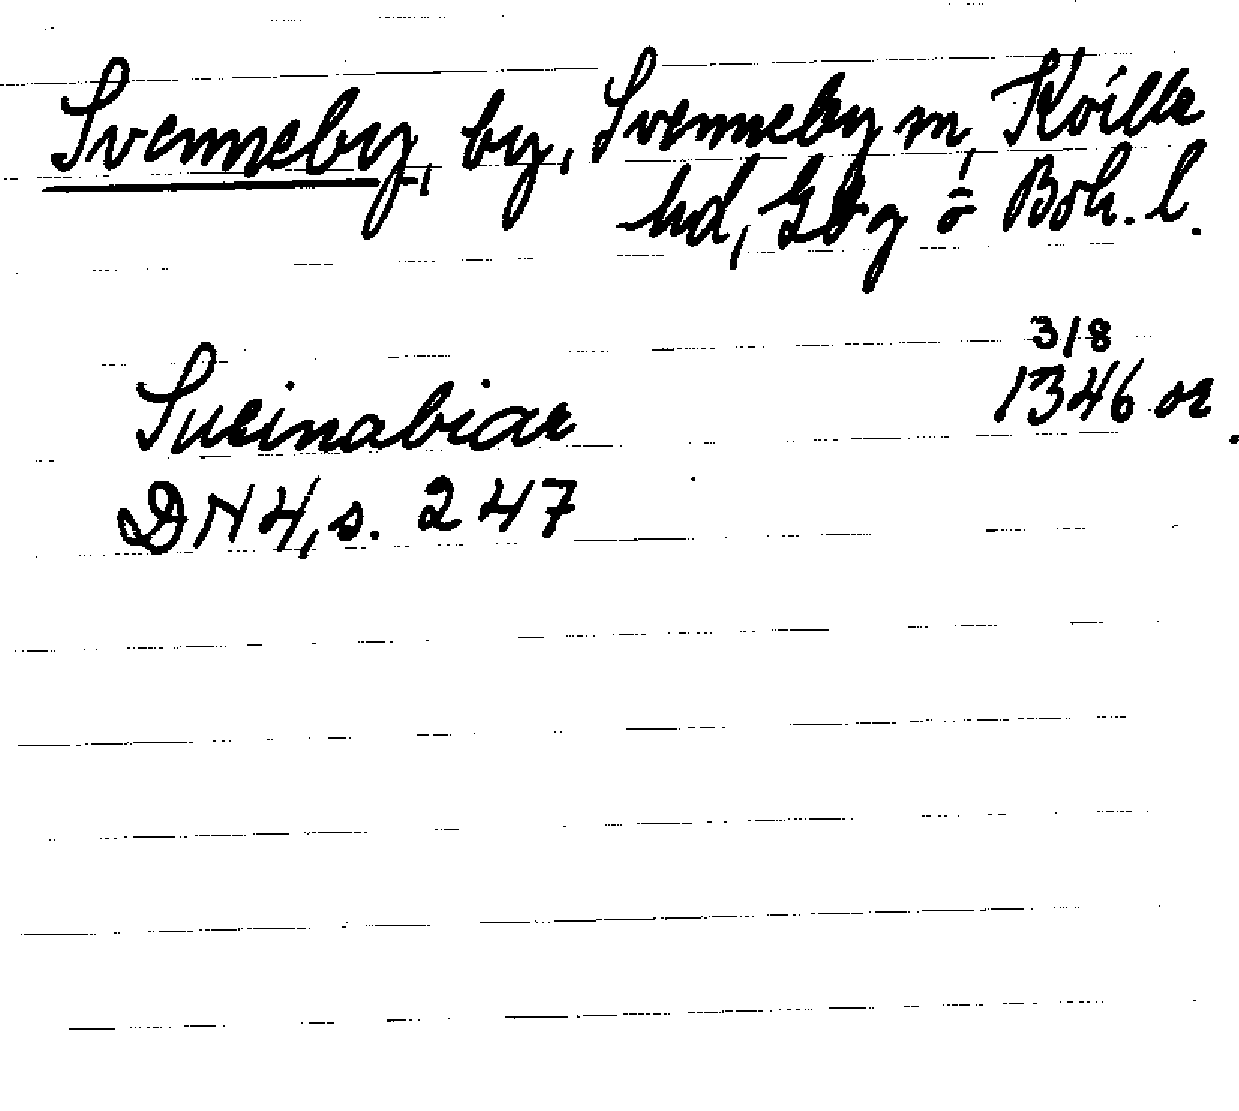 Svenneby, by, Svenneby sn, Kville
hd, Gbg o Boh. l.
3/8
Sueinabiar 1346 or.
DN 4, s. 247